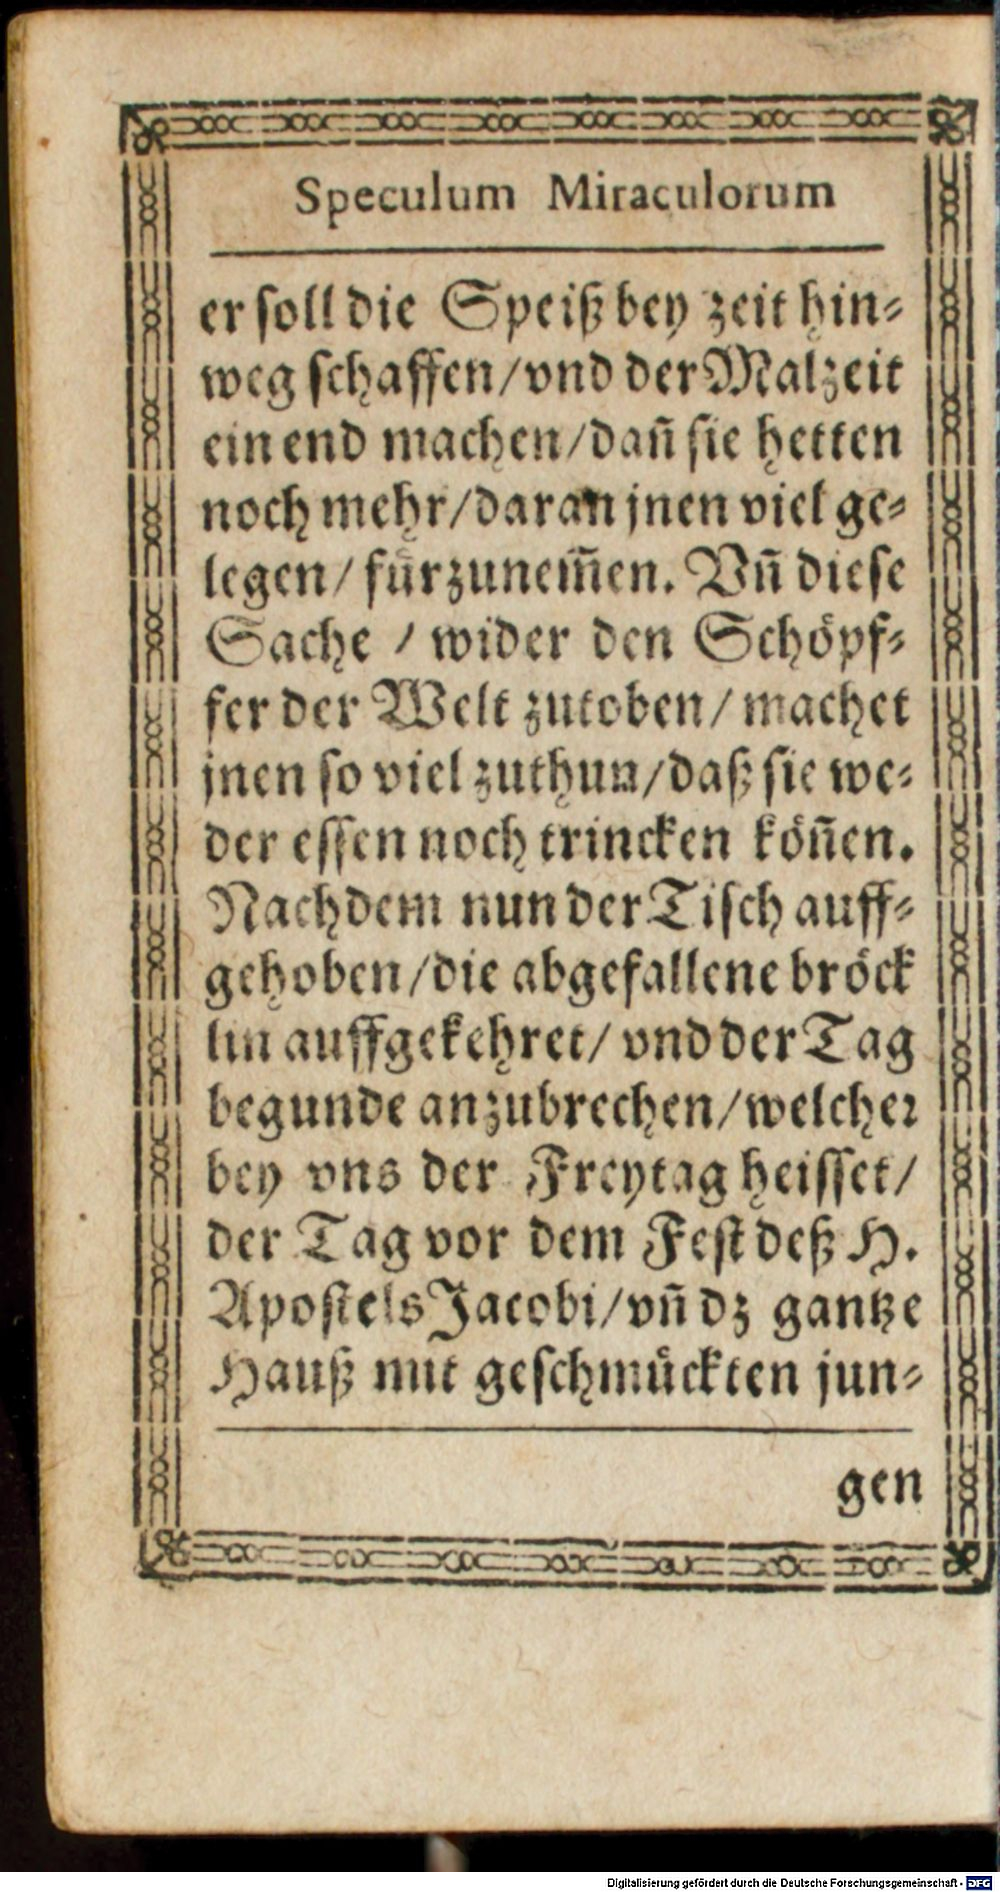 Speculum Miraculorum
er soll die Speiß bey zeit hin-
weg schaffen/vnd der Malzeit
ein end machen/dañ sie hetten
noch mehr/daran jnen viel ge-
legen/ fürzunem̃en. Vñ diese
Sache / wider den Schöpf-
fer der Welt zutoben/ machet
jnen so viel zuthun/daß sie we-
der essen noch trincken köñen.
Nachdem nun der Tisch auff-
gehoben/die abgefallene bröck
lin auffgekehret/ vnd der Tag
begunde anzubrechen/welcher
bey vns der Freytag heisset/
der Tag vor dem Fest deß H.
Apostels Jacobi/vñ dz gantze
Hauß mit geschmückten jun-
gen
Digitalisierung gefördert durch die Deutsche Forschungsgemeinschaft - DFG